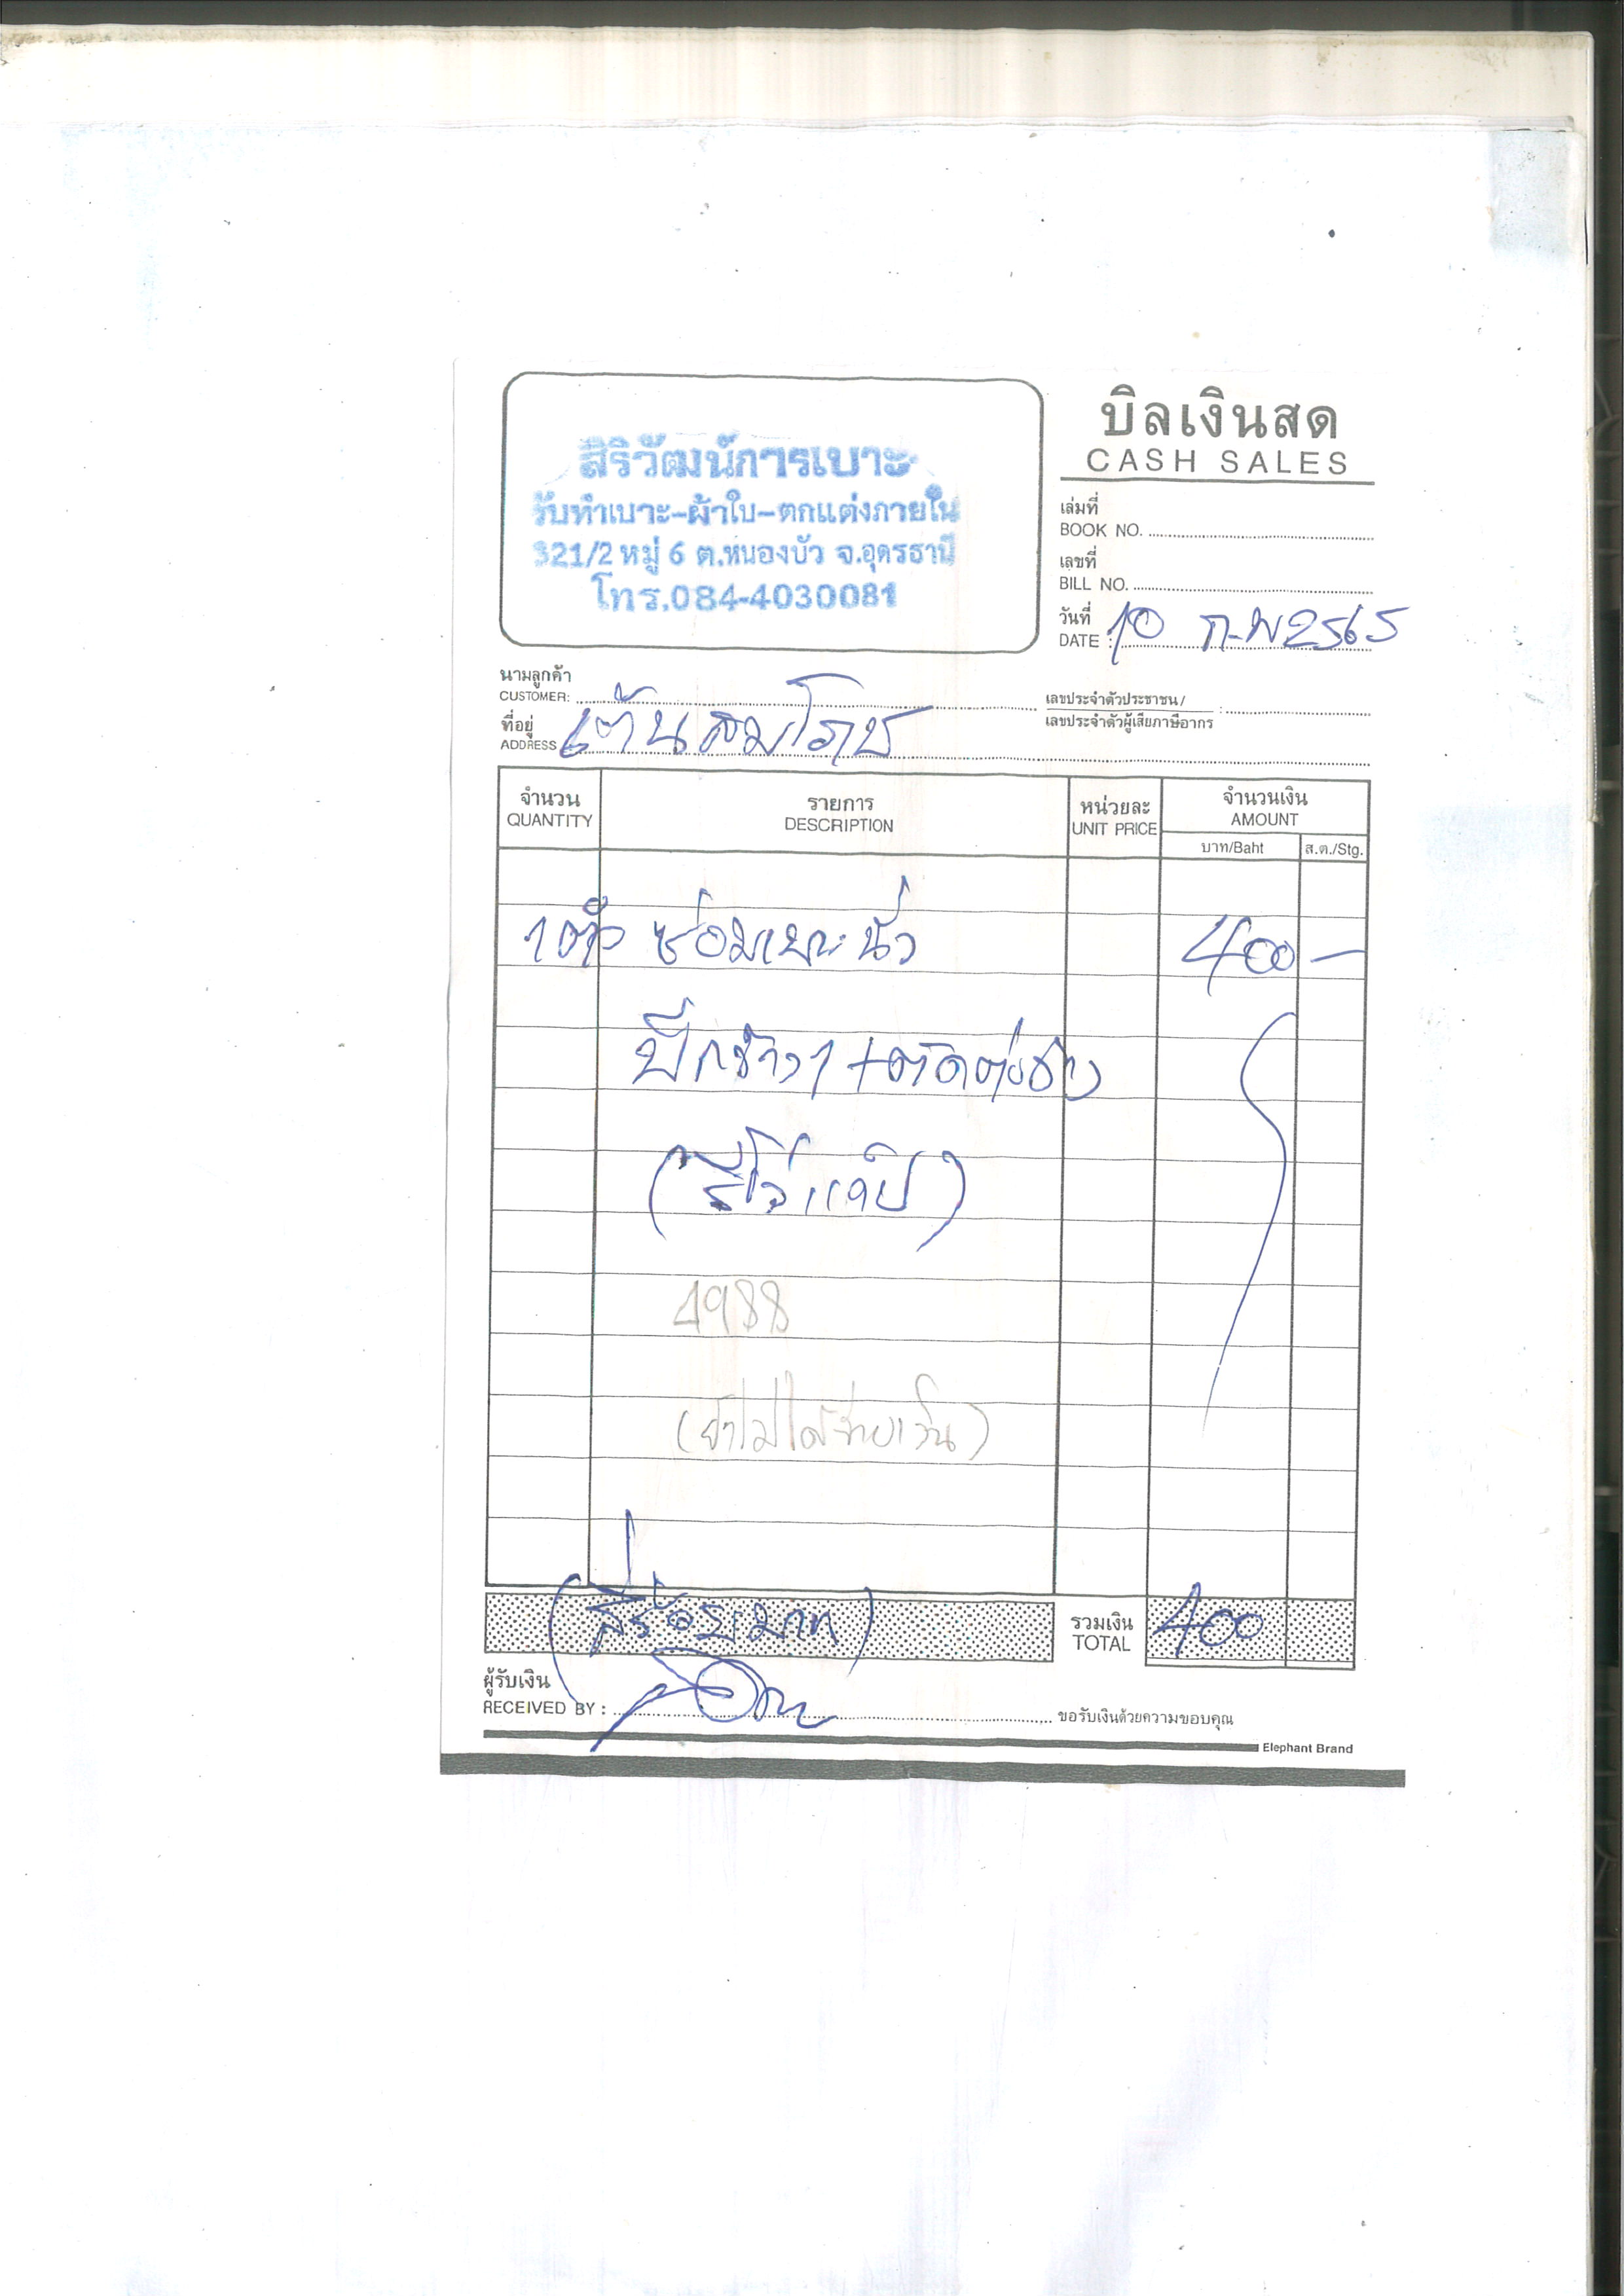 สิริวัฒน์การเบาะ
รับทำเบาะ-ผ้าใบ-ตกแต่งภายใน
321/2 หมู่ 6 ต.หนองบัว จ.อุดรธานี
โทร.084-4030081
บิลเงินสด
CASH SALES
เล่มที่
BOOK NO.
เลขที่
BILL NO.
วันที่
DATE : 10 ก.พ 2565
นามลูกค้า
CUSTOMER:
เลขประจำตัวประชาชน /
เลขประจำตัวผู้เสียภาษีอากร :
ที่อยู่
ADDRESS เต้นสมโภช
จำนวน รายการ หน่วยละ จำนวนเงิน
QUANTITY DESCRIPTION UNIT PRICE AMOUNT
บาท/Baht ส.ต./Stg.
1 ตัว ซ่อมเบาะนั่ง 400 -
ปีกข้าง 1 +
(รีโว่แค๊ป)
4988
(ยังไม่ได้จ่ายเงิน)
(สี่ร้อยบาท) รวมเงิน 400
TOTAL
ผู้รับเงิน
RECEIVED BY : ขอรับเงินด้วยความขอบคุณ
Elephant Brand